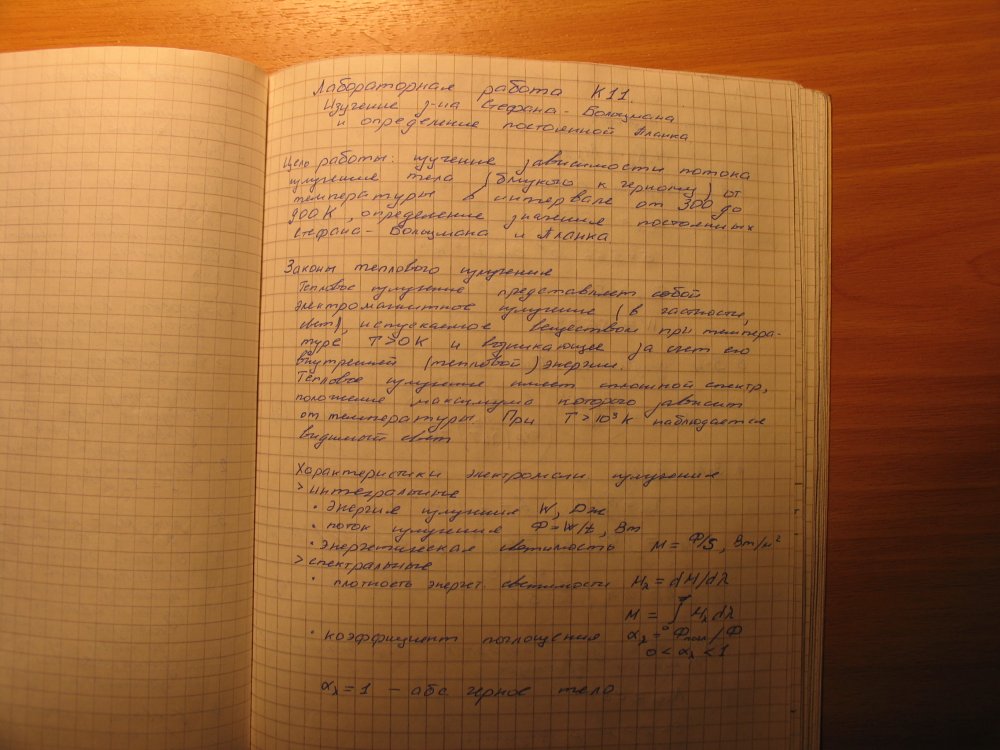 Лабораторная работа К11.
Изучение з-на Стефана-Больцмана
и определение постоянной Планка.
Цель работы: изучение зависимости потока
излучения тела (близкого к черному) от
температуры в интервале от 300 до
900 К, определение значения постоянных
Стефана-Больцмана и Планка.
Законы теплового излучения
Тепловое излучение представляет собой
электромагнитное излучение (в частности,
свет), испускаемое веществом при темпера-
туре T>0 К и возникающее за счет его
внутренней (тепловой) энергии.
Тепловое излучение имеет сплошной спектр,
положение максимума которого зависит
от температуры. При T > 10³ К наблюдается
видимый свет
Характеристики электромагн излучения
> интегральные
• энергия излучения W, Дж
• поток излучения Ф=W/t, Вт
• энергетическая светимость M = Ф/S, Вт/м²
> спектральные
• плотность энергет. светимости M_λ = dM/dλ
M = ∫₀^∞ M_λ dλ
• коэффициент поглощения α_λ = Ф_погл/Ф
0 < α_λ < 1
α_λ = 1 – абс. черное тело.